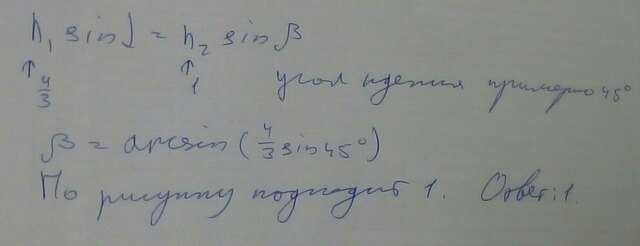 n₁ sin α = n₂ sin β
↑ 4/3 ↑ 1 угол падения примерно 45°
β = arcsin (4/3 sin 45°)
По рисунку подходит 1. Ответ: 1.